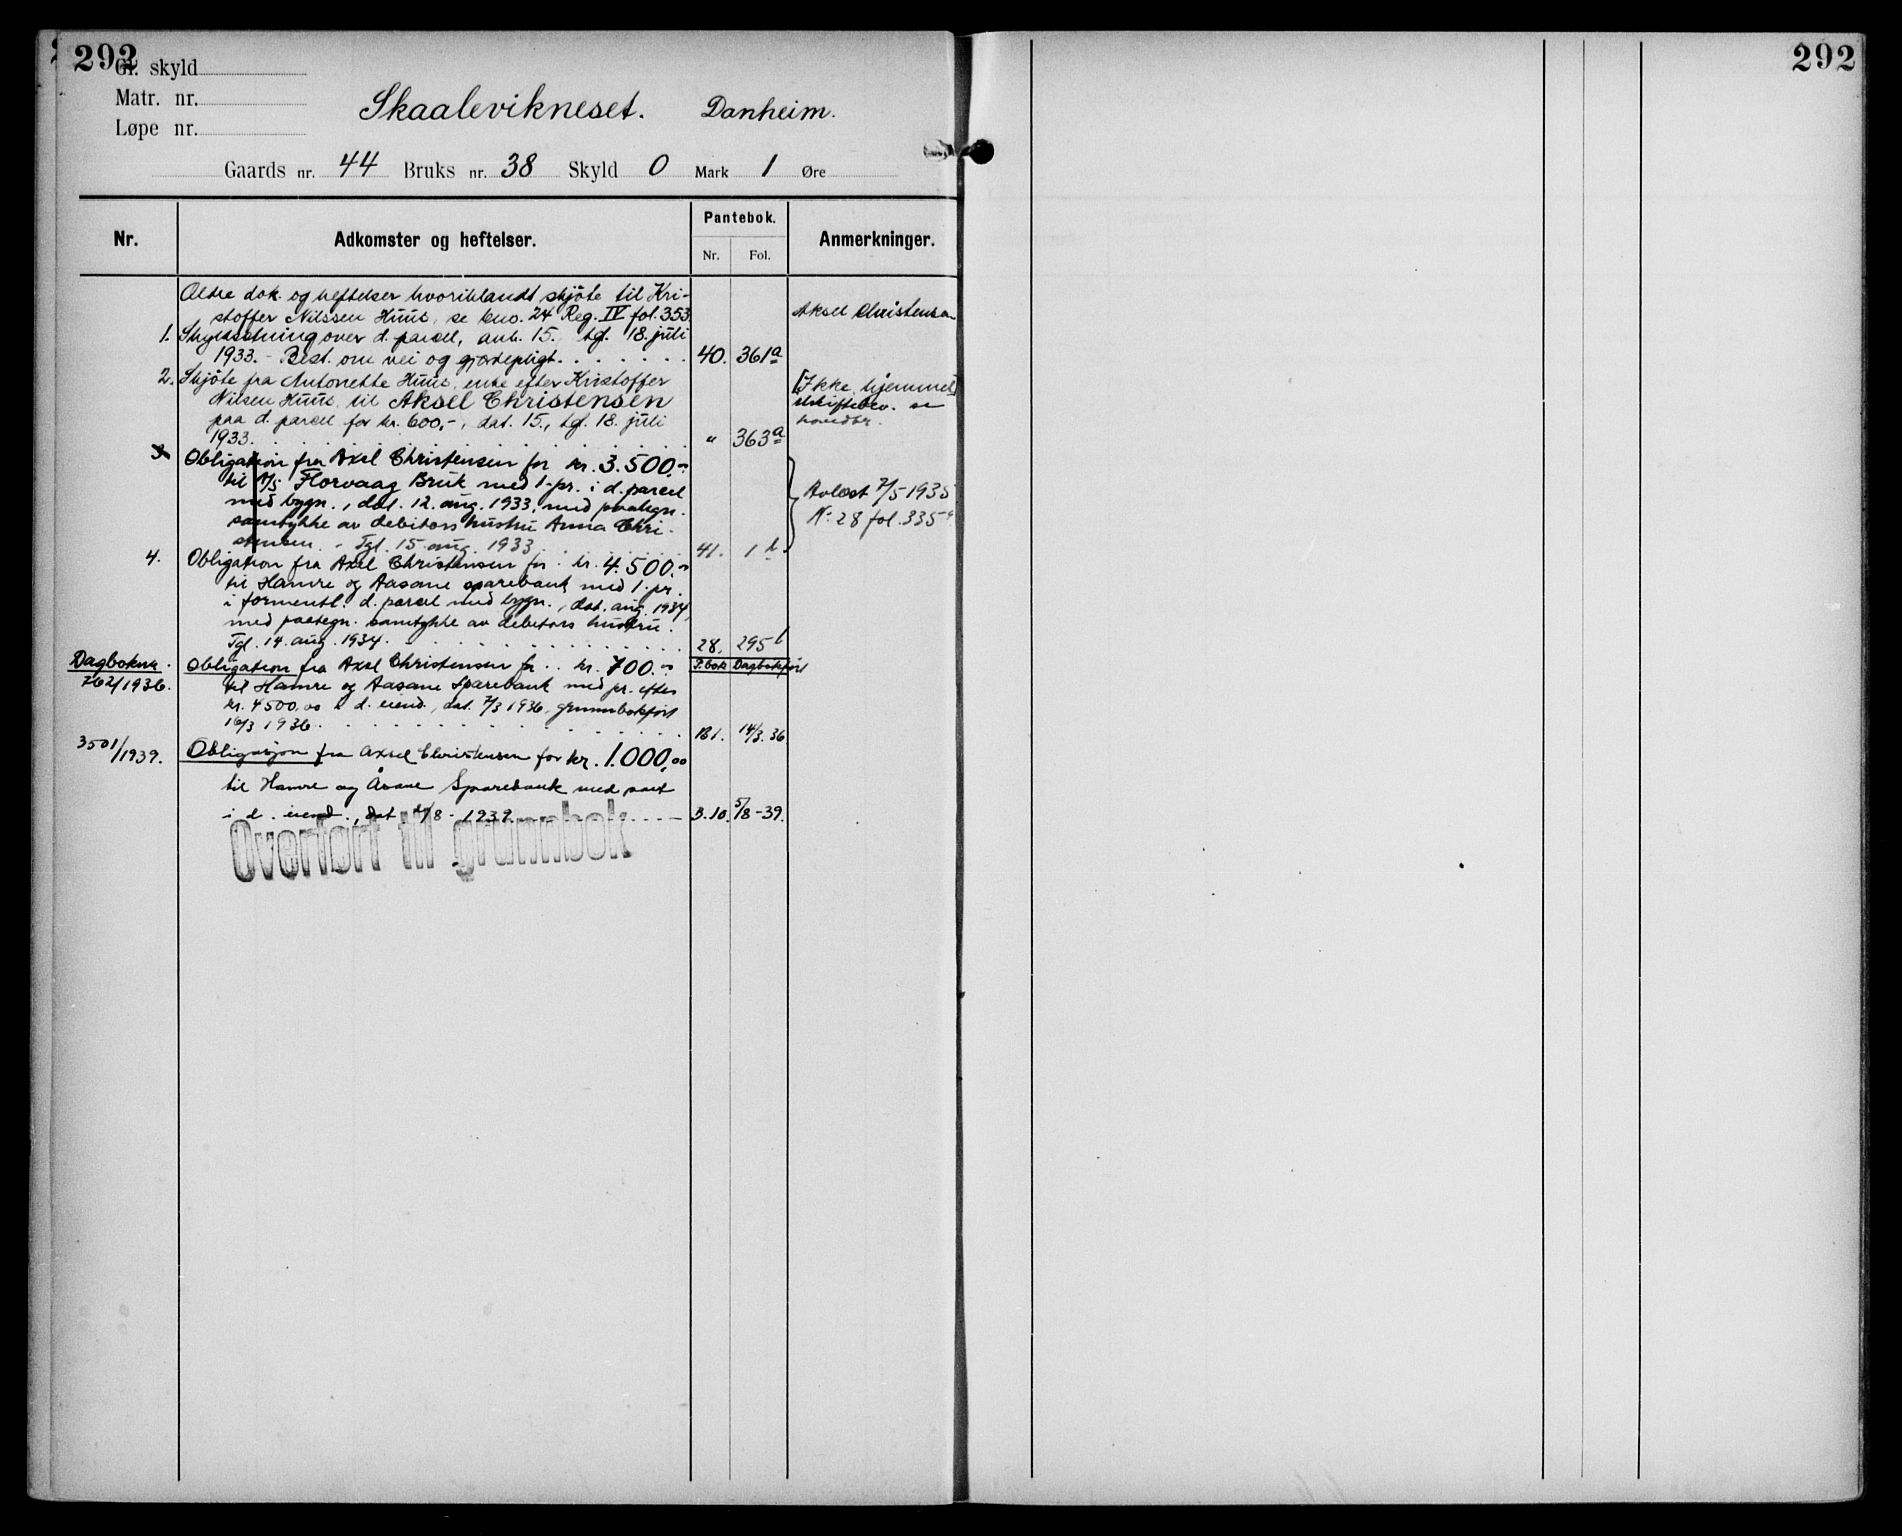 292
292
Gl. skyld
Matr. nr.
Løpe nr.
Skaalevikneset. Danheim.
Gaards nr. 44 Bruks nr. 38 Skyld 0 Mark 1 Øre
Nr.
Adkomster og heftelser.
Pantebok.
Nr. Fol.
Anmerkninger.
Aeldre dok. og heftelser hvoriblandt skjöte til Kri-
stoffer Nilssen Huus, se bno. 24 Reg. IV fol. 353
Aksel Christensen
1. Skyldsetning over d. parcel, avh. 15., tgl. 18. juli
1933. - Best. om vei og gjerdepligt. 40. 361a
2. Skjöte fra Antonette Huus, enke efter Kristoffer
Nilsen Huus, til Aksel Christensen
paa d. parcel for kr. 600,-, dat. 15., tgl. 18. juli
1933. " 363a
[Ikke hjemmel]
skiftebev. se
hovedbr.
3. Obligation fra Axel Christensen for kr. 3.500.-
til A/S Florvaag Bruk med 1. pr. i d. parcel
med bygn., dat. 12. aug. 1933, med paategn.
samtykke av debitors hustru Anna Chri-
stensen. - Tgl. 15. aug. 1933 41. 1b
Avlæst 7/5 1935
N: 28 fol. 335a
4. Obligation fra Axel Christensen for kr. 4.500.-
til Hamre og Aasane sparebank med 1. pr.
i formentl. d. parcel med bygn., dat. aug. 1934,
med paategn. samtykke av debitors hustru.
Tgl. 14. aug. 1934. 28. 295b
Dagboknr. P.bok Dagbokført
762/1936. Obligation fra Axel Christensen for kr. 700.-
til Hamre og Aasane Sparebank med pr. efter
kr. 4500,00 i d. eiend., dat. 7/3 1936, grunnbokført
16/3 1936. B1. 14/3.36
3501/1939. Obligasjon fra Axsel Christensen for kr. 1.000,00
til Hamre og Åsane Sparebank med pant
i d. eiend., dat /8 - 1939. B.10. 5/8-39.
Overført til grunnbok